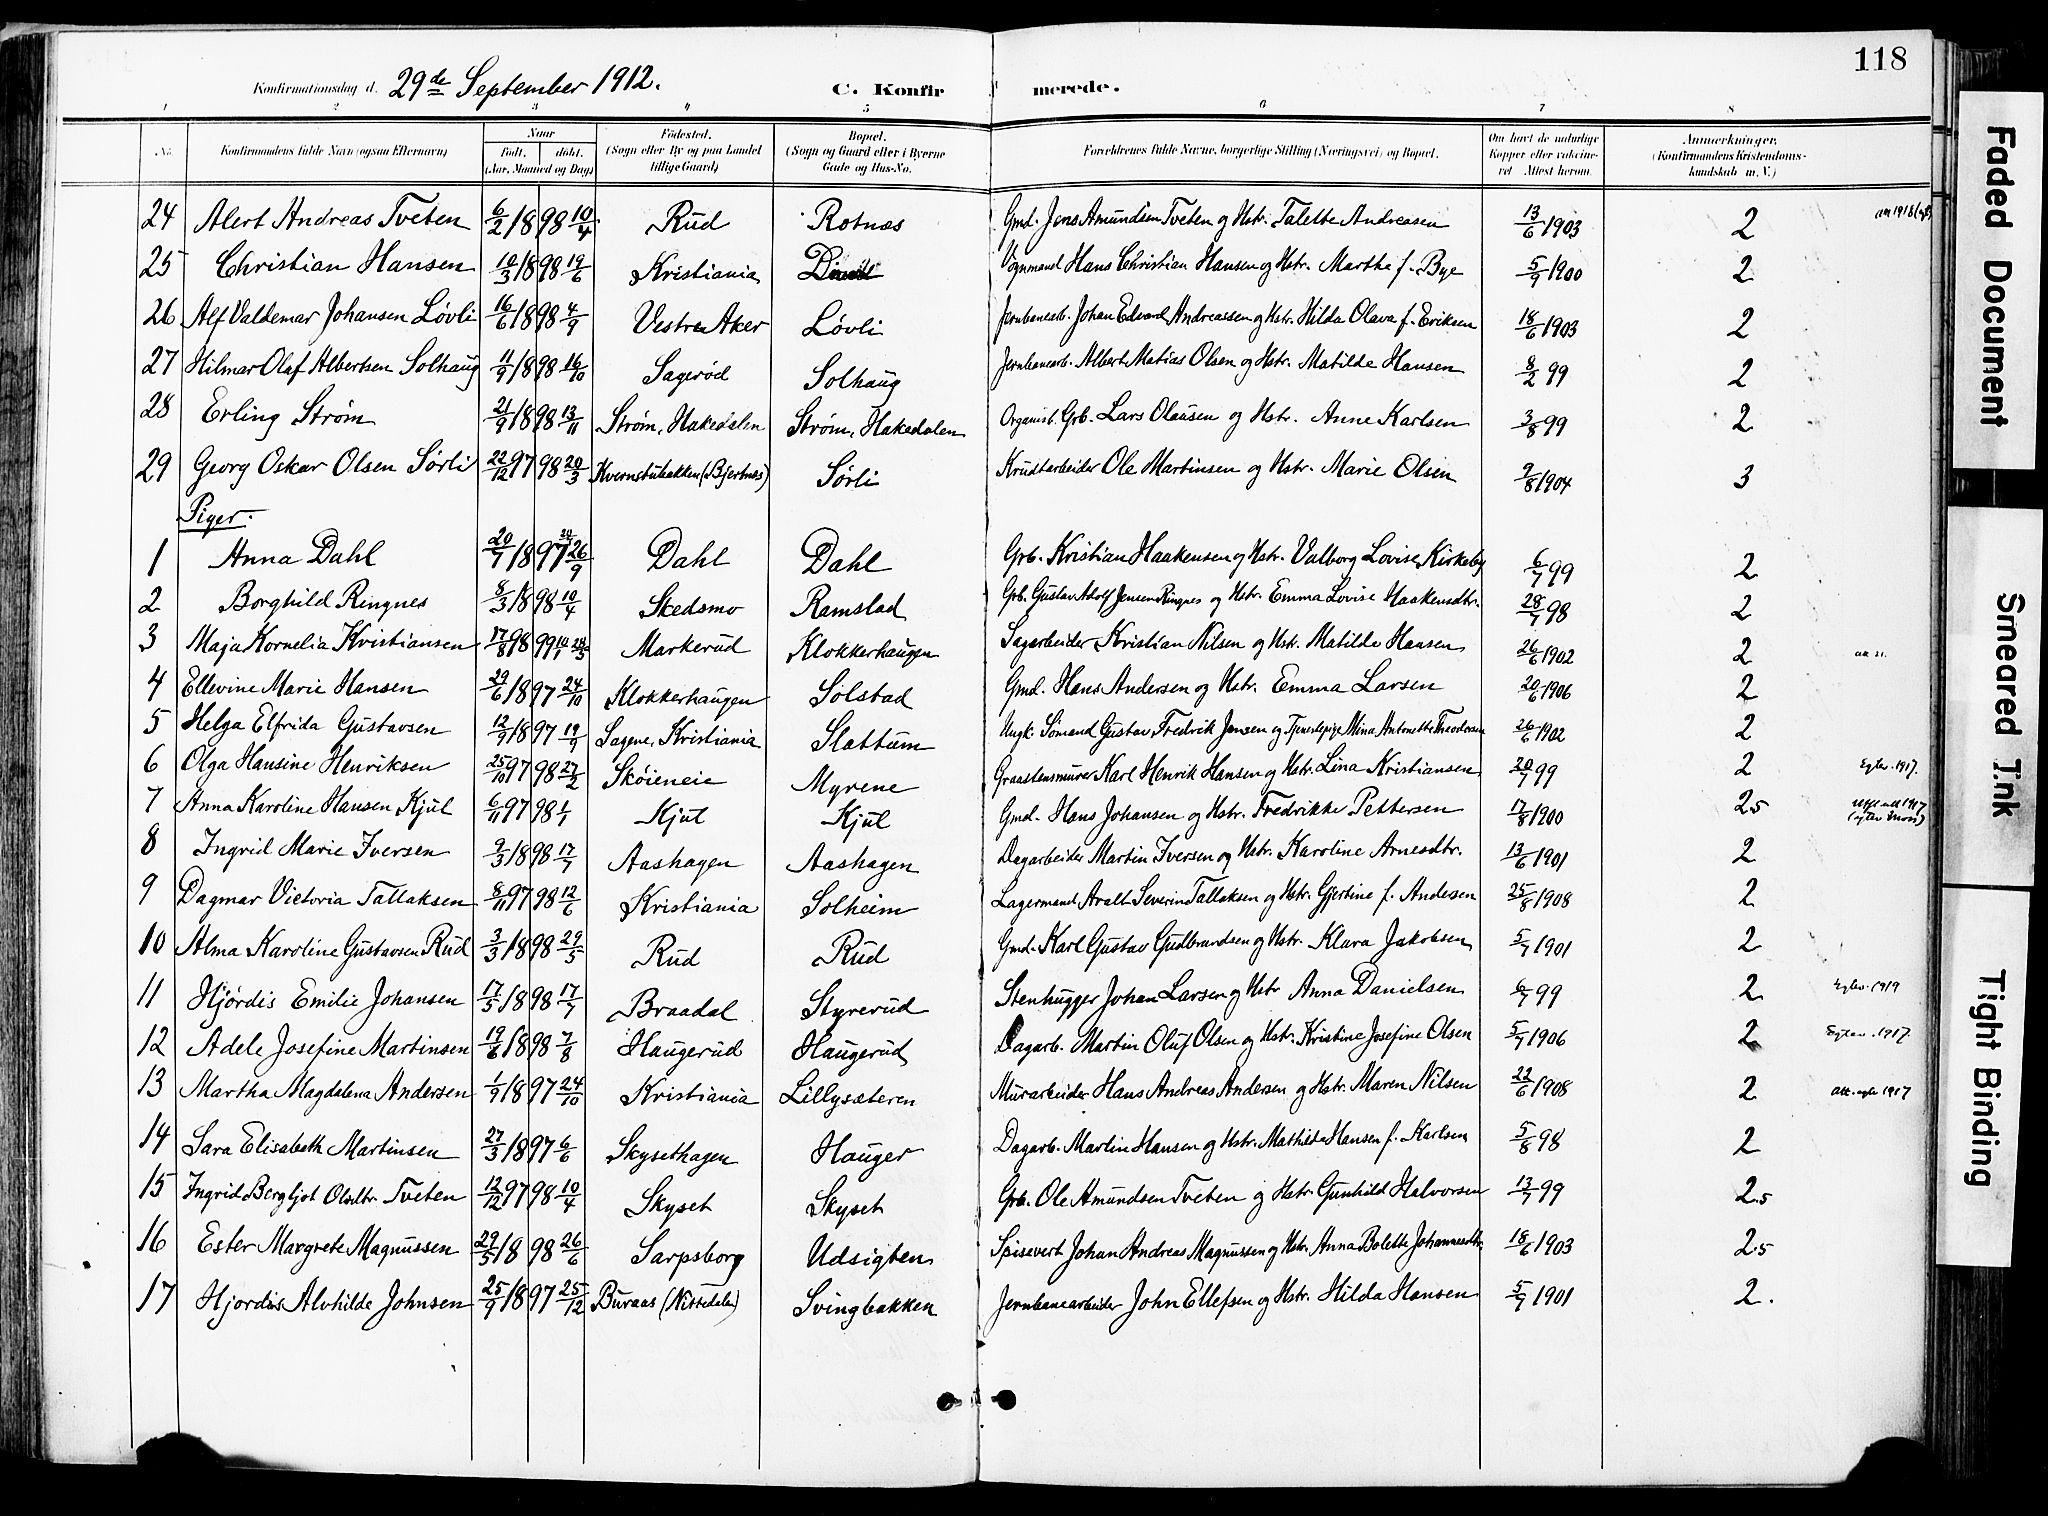 118
Konfirmationsdag d. 29de September 1912. C. Konfir merede.
1 2 3 4 5 6 7 8
No. Konfirmandens fulde Navn (ogsaa Efternavn) Naar født, døbt. (Aar, Maaned og Dag) Fødested. (Sogn eller By og paa Landet tillige Gaard) Bopæl. (Sogn og Gaard eller i Byerne Gade og Hus-No. Forældrenes fulde Navne, borgerlige Stilling (Næringsvei) og Bopæl. Om havt de naturlige Kopper eller vakcineret Attest herom. Anmerkninger, (Konfirmandens Kristendomskundskab m. V.)
24 Alert Andreas Tveten 6/2 1898 10/4 Rud Rotnes Gmd. Jens Amundsen Tveten og Hstr. Talette Andreasen 13/6 1903 2
25 Christian Hansen 10/3 1898 19/6 Kristiania Vognmand Hans Christian Hansen og Hstr. Martha f. Bye 5/9 1900 2
26 Alf Valdemar Johansen Løvli 16/6 1898 4/9 Vestre Aker Løvli Jernbanearb. Johan Edvard Andreassen og Hstr. Hilda Olava f. Eriksen 18/6 1903 2
27 Hilmar Olaf Albertsen Solhaug 11/9 1898 16/10 Sagerød Solhaug Jernbanearb. Albert Matias Olsen og Hstr. Matilde Hansen 8/2 99 2
28 Erling Strøm 21/9 1898 13/11 Strøm, Hakedalen Strøm, Hakedalen Organist. Grb. Lars Olausen og Hstr. Anne Karlsen 3/8 99 2
29 Georg Oskar Olsen Sørli 22/12 97 98 20/3 Kvernstubakken (Bjertnes) Sørli Krudtarbeider Ole Martinsen og Hstr. Marie Olsen 9/8 1904 3
Piger.
1 Anna Dahl 20/7 1897 26/9 Dahl Dahl Grb. Kristian Haakensen og Hstr. Valborg Lovise Kirkeby 6/7 99 2
2 Borghild Ringnes 8/3 1898 10/4 Skedsmo Ramstad Grb. Gustav Adolf Jensen Ringnes og Hstr. Emma Lovise Haakensdtr. 28/7 98 2
3 Maja Kornelia Kristiansen 17/8 98 99 Markerud Klokkerhaugen Sagarbeider Kristian Nilsen og Hstr. Matilde Hansen 26/6 1902 2
4 Ellevine Marie Hansen 29/6 1897 24/10 Klokkerhaugen Solstad Gmd. Hans Andersen og Hstr. Emma Larsen 20/6 1906 2
5 Helga Elfrida Gustavsen 12/9 1897 19/9 Sagene, Kristiania Slattum Ungk. Sømand Gustav Fredrik Jensen og Tjenestepige Mina Antonette Theodorsen 26/6 1902 2
6 Olga Hansine Henriksen 25/10 97 98 27/2 Skøieneie Myrene Graastensmurer Karl Henrik Hansen og Hstr. Lina Kristiansen 20/7 99 2 Egtev. 1917.
7 Anna Karoline Hansen Kjul 6/11 97 98 1/1 Kjul Kjul Gmd. Hans Johansen og Hstr. Fredrikke Pettersen 17/8 1900 2.5
8 Ingrid Marie Iversen 9/3 1898 17/7 Aashagen Aashagen Dagarbeider Martin Iversen og Hstr. Karoline Arnesdtr. 13/6 1901 2
9 Dagmar Victoria Tallaksen 8/11 97 98 12/6 Kristiania Solheim Lagermand Avalt Severin Tallaksen og Hstr. Gjertine f. Andersen 25/8 1908 2
10 Alma Karoline Gustavsen Rud 3/3 1898 29/5 Rud Rud Gmd. Karl Gustav Gudbrandsen og Hstr. Klara Jakobsen 5/7 1901 2
11 Hjørdis Emilie Johansen 17/5 1898 17/7 Braadal Styrerud Stenhugger Johan Larsen og Hstr Anna Danielsen 6/7 99 2 Egtev. 1919
12 Adele Josefine Martinsen 19/6 1898 7/8 Haugerud Haugerud Dagarb. Martin Oluf Olsen og Hstr. Kristine Josefine Olsen 5/7 1906 2 Egtev. 1917.
13 Martha Magdalena Andersen 1/9 1897 24/10 Kristiania Lillysæteren Murarbeider Hans Andreas Andersen og Hstr. Maren Nilsen 22/6 1908 2 att. egte 1917
14 Sara Elisabeth Martinsen 27/3 1897 6/6 Skysethagen Hauger Dagarb. Martin Hansen og Hstr. Mathilde Hansen f. Karlsen 5/8 98 2
15 Ingrid Bergljot Olsdtr. Tveten 12/12 97 98 10/4 Skyset Skyset Grb. Ole Amundsen Tveten og Hstr. Gunhild Halvorsen 13/7 99 2.5
16 Ester Margrete Magnussen 29/5 1898 26/6 Sarpsborg Udsigten Spisevert Johan Andreas Magnussen og Hstr. Anna Bolette Johannesdtr. 18/6 1903 2.5
17 Hjordis Alvhilde Johnsen 25/9 1897 25/12 Buraas (Nittedalen) Svingbakken Jernbanearbeider John Ellefsen og Hstr. Hilda Hansen 5/7 1901 2.
Faded Document
Smeared Ink
Tight Binding